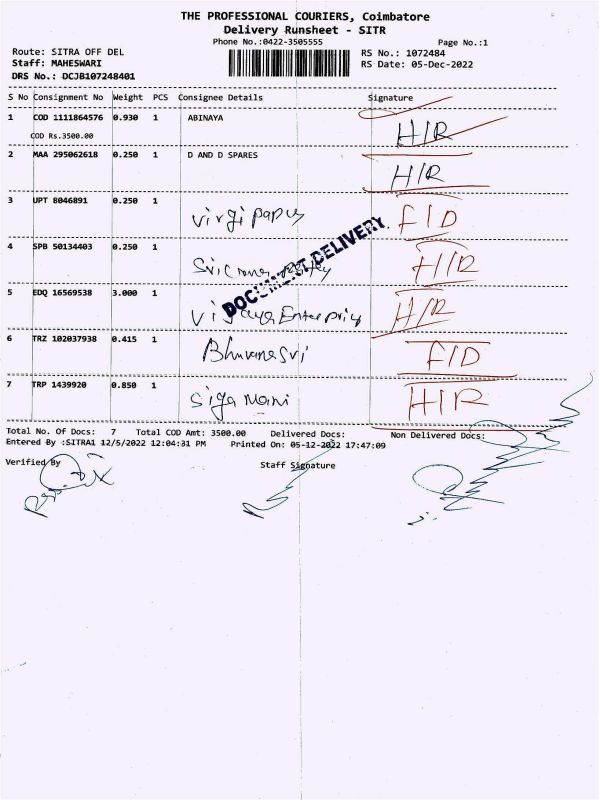 THE PROFESSIONAL COURIERS, Coimbatore
Delivery Runsheet - SITR
Phone No.:0422-3505555
Page No.:1
Route: SITRA OFF DEL
RS No.: 1072484
Staff: MAHESWARI
RS Date: 05-Dec-2022
DRS No.: DCJB107248401
S No Consignment No Weight PCS Consignee Details Signature
1 COD 1111864576 0.930 1 ABINAYA H/R
COD Rs.3500.00
2 MAA 295062618 0.250 1 D AND D SPARES H/R
3 UPT 8046891 0.250 1 Virgi papus F/D
4 SPB 50134403 0.250 1 H/R
DOCUMENT DELIVERY
5 EDQ 16569538 3.000 1 Vijaya Enterpris H/R
6 TRZ 102037938 0.415 1 Bhuvanasri F/D
7 TRP 1439920 0.850 1 Siga mani H/R
Total No. Of Docs: 7 Total COD Amt: 3500.00 Delivered Docs: Non Delivered Docs:
Entered By :SITRA1 12/5/2022 12:04:31 PM Printed On: 05-12-2022 17:47:09
Verified By Staff Signature